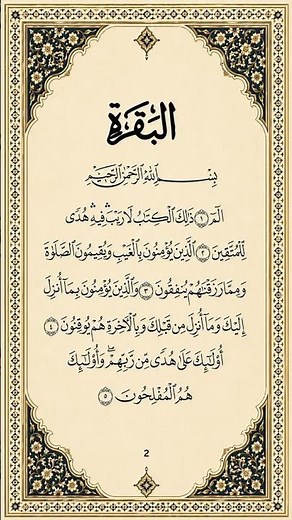 البقرة
بِسْمِ اللَّهِ الرَّحْمَٰنِ الرَّحِيمِ
الم ١ ذَٰلِكَ الْكِتَابُ لَا رَيْبَ ۛ فِيهِ ۛ هُدًى
لِلْمُتَّقِينَ ٢ الَّذِينَ يُؤْمِنُونَ بِالْغَيْبِ وَيُقِيمُونَ الصَّلَوٰةَ
وَمِمَّا رَزَقْنَاهُمْ يُنْفِقُونَ ٣ وَالَّذِينَ يُؤْمِنُونَ بِمَا أُنْزِلَ
إِلَيْكَ وَمَا أُنْزِلَ مِنْ قَبْلِكَ وَبِالْآخِرَةِ هُمْ يُوقِنُونَ ٤
أُولَٰئِكَ عَلَىٰ هُدًى مِنْ رَبِّهِمْ ۖ وَأُولَٰئِكَ
هُمُ الْمُفْلِحُونَ ٥
2